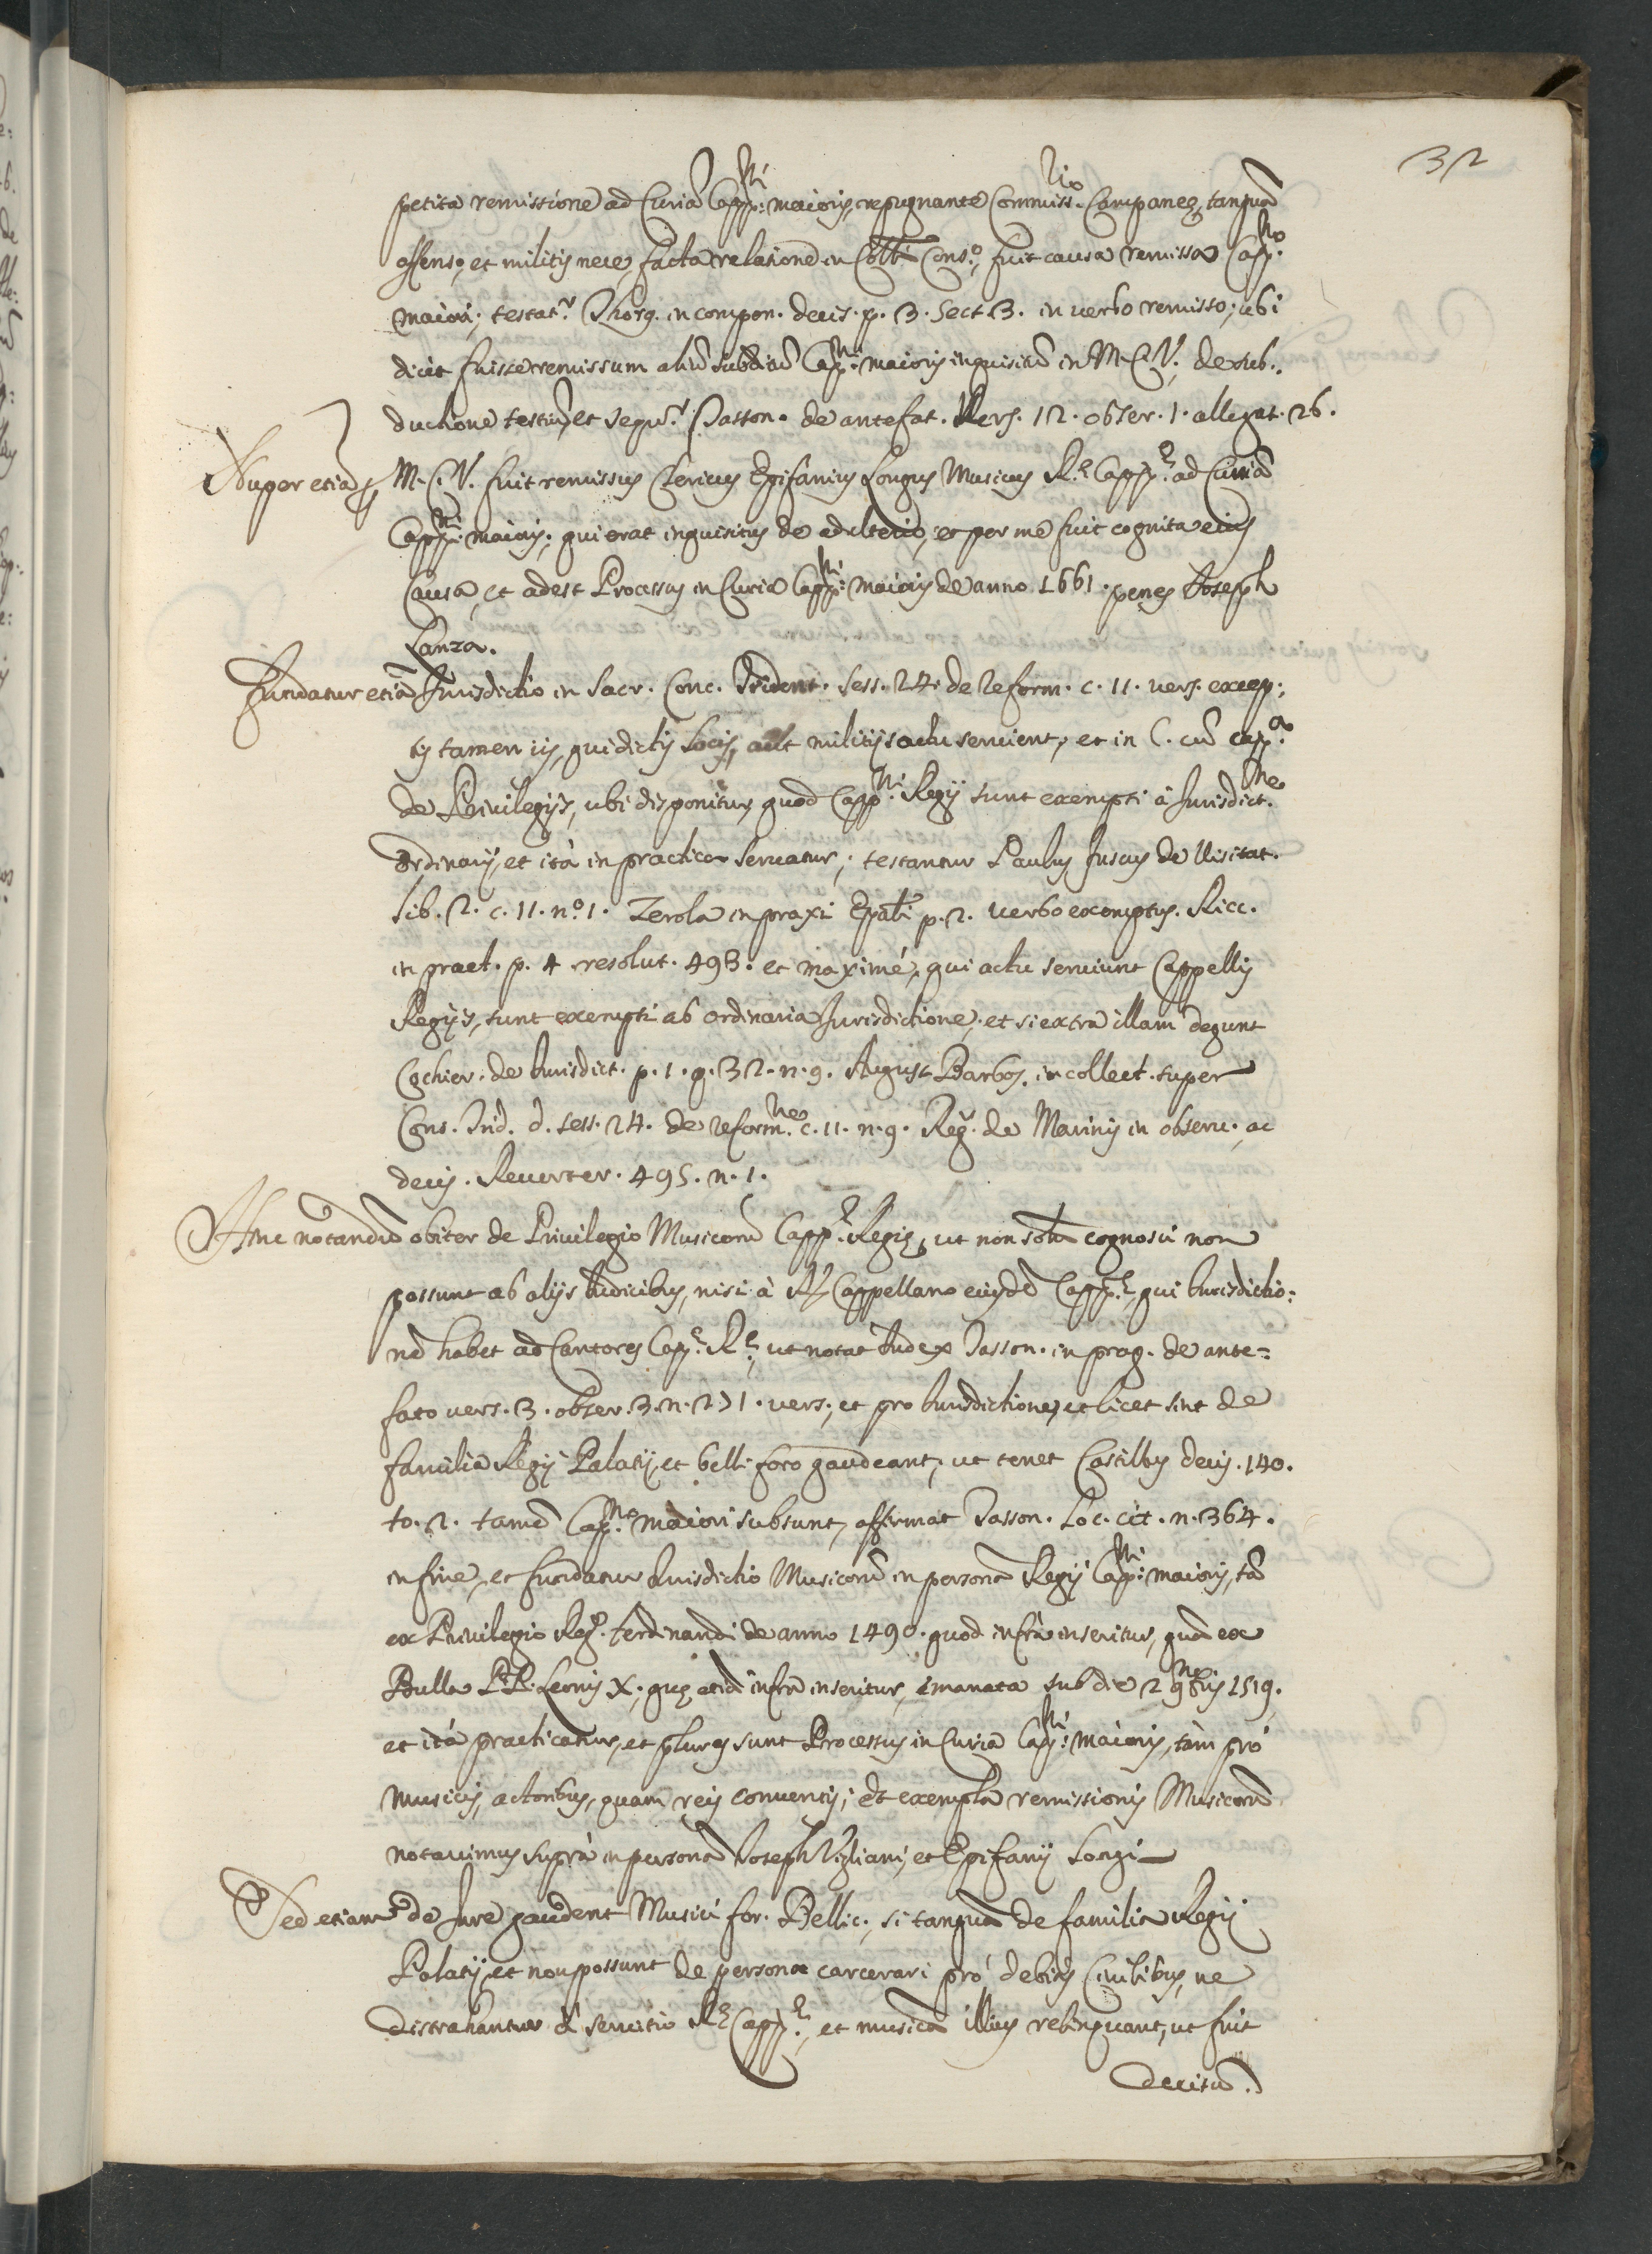 32
petita remissione ad Curiã Capp:ⁿⁱ maioris, repugnante Commiss.ʳⁱᵒ Campaneę, tanquã
offenso, et militis nece, facta relatione in Coll:ⁱ Cons:º, fuit causa remissa Cap:ⁿᵒ
maiori; testat.ʳ Thorg. in compon. decis. p. 3. Sect. 3. in uerbo remissio; ubi
dicit fuisse remissum aliũ subditũ Cap:ⁿⁱ maioris inquisitũ in M. C. V. de sub:
ductione testiũ, et sequr. Tasson. de antefat. Vers. 12. obser. 1. allegat. 26.
Nuper etiã à M. C. V. fuit remissus Clericus Epifanius Longus Musicus R.ᵉ Capp.ᵉ ad Curiã
Capp:ⁿⁱ maioris, qui erat inquisitus de adulterio, et per me fuit cognita eius
Causa, et adest Processus in Curia Capp:ⁿⁱ maioris de anno 1661. penes Joseph
Lanza.
Fundatur etiã Jurisdictio in Sacr. Conc. Trident. Sess. 24. de reform. c. 11. vers. excep:
tis tamen iis, qui dictis Locis, aut militijs actu seruient, et in C. cũ cap.ᵃ
de Priuilegijs, ubi disponitur, quod Capp.ⁿⁱ Regij sunt exempti à Jurisdict.ⁿᵉ
Ordinarij, et ità in practica seruatur; testantur Paulus Fuscus de Visitat.
lib. 2. c. 11. nº. 1. Zerola in praxi Epali p. 2. uerbo exemptus. Ricc.
in pract. p. 4 resolut. 493. et maximè, qui actu seruiunt Cappellis
Regijs, sunt exempti ab ordinaria Jurisdictione, et si extra illam degunt
Cochier. de Jurisdict. p. 1. q. 32. n. 9. August. Barbos. in collect. super
Conc. Trid. d. sess. 24. de reform.ⁿᵉ c. 11. n. 9. Reg. de Marinis in obseru. ac
decis. Reuerter. 495. n. 1.
Hinc notandũ obiter de Priuilegio Musicorũ Capp.ᵉ Regię, ut non solũ cognosci non
possunt ab alijs Judicibus, nisi à R. Cappellano eiusdẽ Capp.ᵉ, qui Jurisdictio:
nẽ habet ad Cantores Cap.ᵉ R.ᵉ, ut notat Judex Tasson. in prag. de ante=
fato uers. 3. obser. 3. n. 271. uers. et pro Jurisdictione, et licet sint de
familia Regij Palatij, et belli foro gaudeant, ut tenet Castillus decis. 140.
to. 2. tamẽ Cap.ⁿᵒ maiori subsunt, affirmat Tasson. Loc. cit. n. 364.
in fine, et fundatur Jurisdictio Musicorũ in personã Regij Capp:ⁿⁱ maioris, tã
ex Priuilegio Reg. Ferdinandi de anno 1490. quod infrà inseritur, quã ex
Bulla P.P. Leonis X., quę etiã infrà inseritur, emanata sub die 2 9bris 1519,
et ità practicatur, et plures sunt Processus in Curia Cap:ⁿⁱ maioris, tàm prò
musicis, actoribus, quam reis conuentis; et exempla remissionis Musicorũ
notauimus suprà in personã Joseph Vigliani, et Epifanij Longi
Sed etiam de Jure gaudent Musici for. Bellic., si tanquã de familia Regij
Palatij, et non possunt de persona carcerari prò debitis Ciuilibus, ne
distrahantur à seruitio R.ᵉ Capp.ᵉ, et musicã illius relinquant, ut fuit
decisũ.